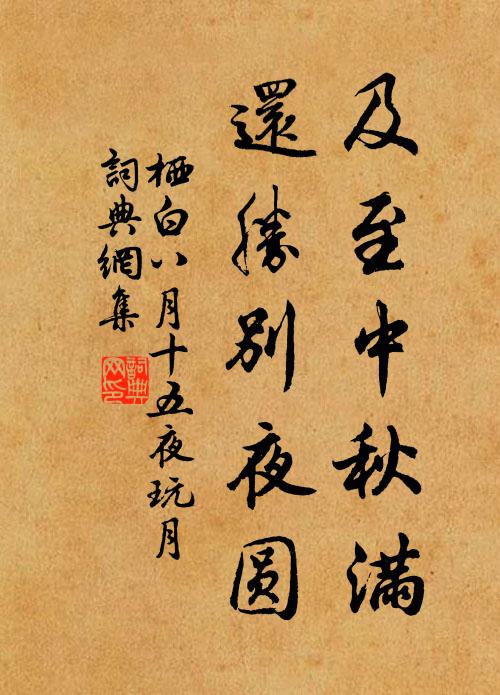 及至中秋滿
還勝別夜圓
栖白八月十五夜玩月
詞典網集
詞典网印